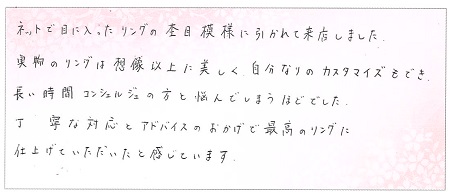 ネットで目に入ったリングの杢目模様に引かれて来店しました.
実物のリングは想像以上に美しく、自分なりのカスタマイズもでき、
長い時間 コンシェルジュの方と悩んでしまうほどでした.
丁寧な対応とアドバイスのおかげで最高のリングに
仕上げていただいたと感じています.